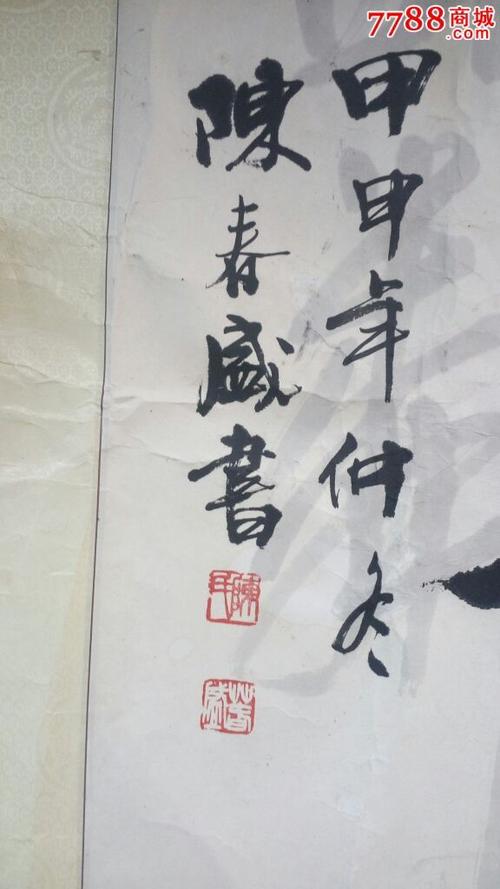 7788商城
7788.com
甲申年仲冬
陳春盛書
陳氏
春盛